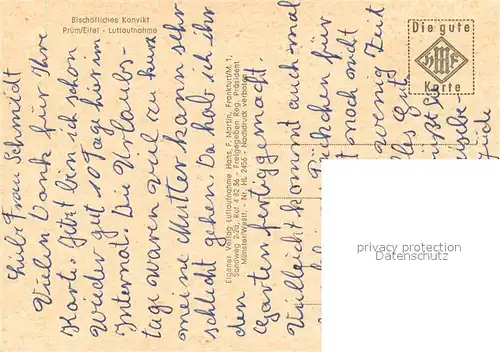 Bischöfliches Konvikt
Prüm/Eifel - Luftaufnahme
Die gute
Karte
Eigener Verlag Luftaufnahme Hans. F. Martin, Frankfurt/M 1,
Sandweg 2-2a, Ruf 4 82 36 - Freigegeben Reg. Präsident
Münster/Westf. - Nr. HL 2456 - Nachdruck verboten
Liebe Frau Schmidt
Vielen Dank für Ihre
Karte. Jetzt bin ich schon
wieder gut 10 Tage hier im
Internat. Die Urlaubs-
tage waren viel zu kurz
meine Mutter kam sehr
schlecht gehen. Da hab ich ihr
den Garten fertiggemacht.
Vielleicht kommt auch mal
für
noch nicht
wenig Zeit
les Gute
privacy protection watermark